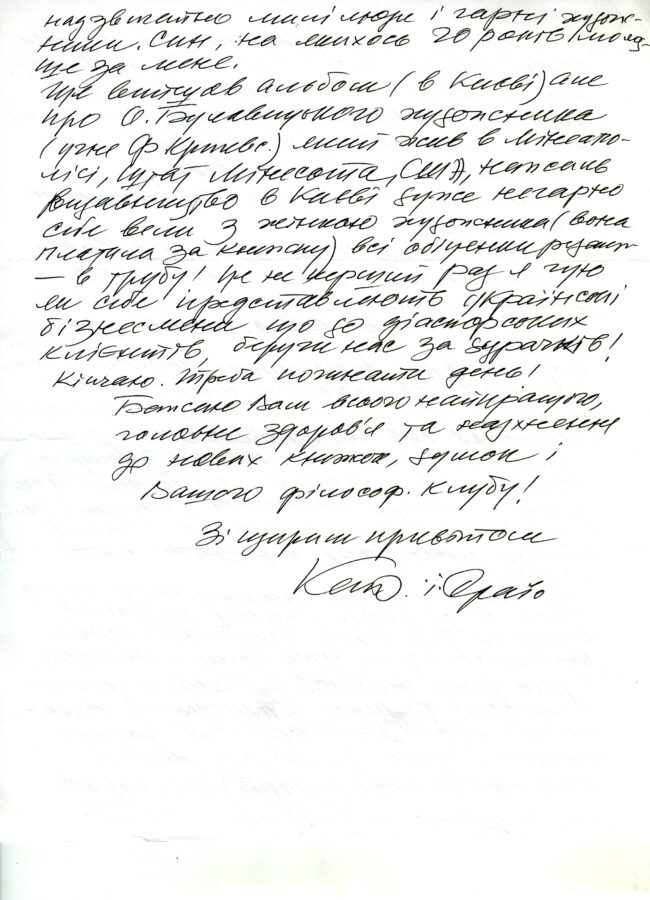 надзвичайно милі люди і гарні худож-
ники. Син, на якихось 20 років молод-
ше за мене.
Ще випусав альбом (в Києві) але
про О. Булавицького художника
(учня Ф. Кричевс.) який жив в Мінеапо-
лісі, штат Мінесота, США, нажаль
видавництво в Києві дуже негарно
себе вели з жінкою художника (вона
платила за книжку) всі обіцянки
— в трубу! Це не перший раз я чую
як себе представляють українські
бізнесмени що до діаспорських
клієнтів, беручи нас за дурачків!
Кінчаю. Треба починати день!
Бажаю Вам всього найкращого,
головне здоров'я та надхнення
до нових книжок, думок і
Вашого філософ. клубу!
Зі щирим привітом